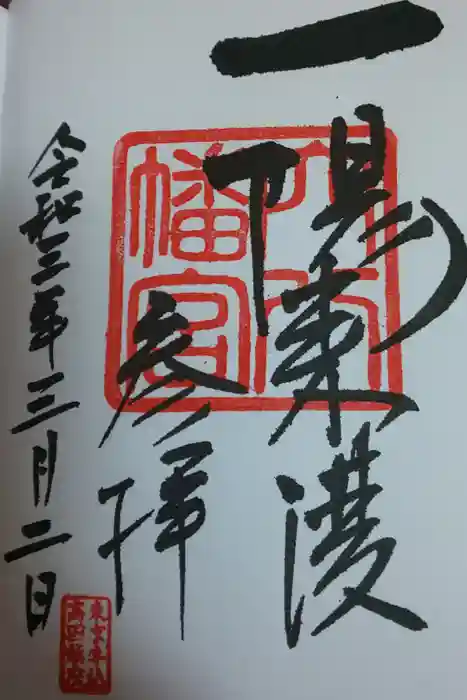 一陽来復
下
参拝
令和三年三月二日
穴八
幡宮